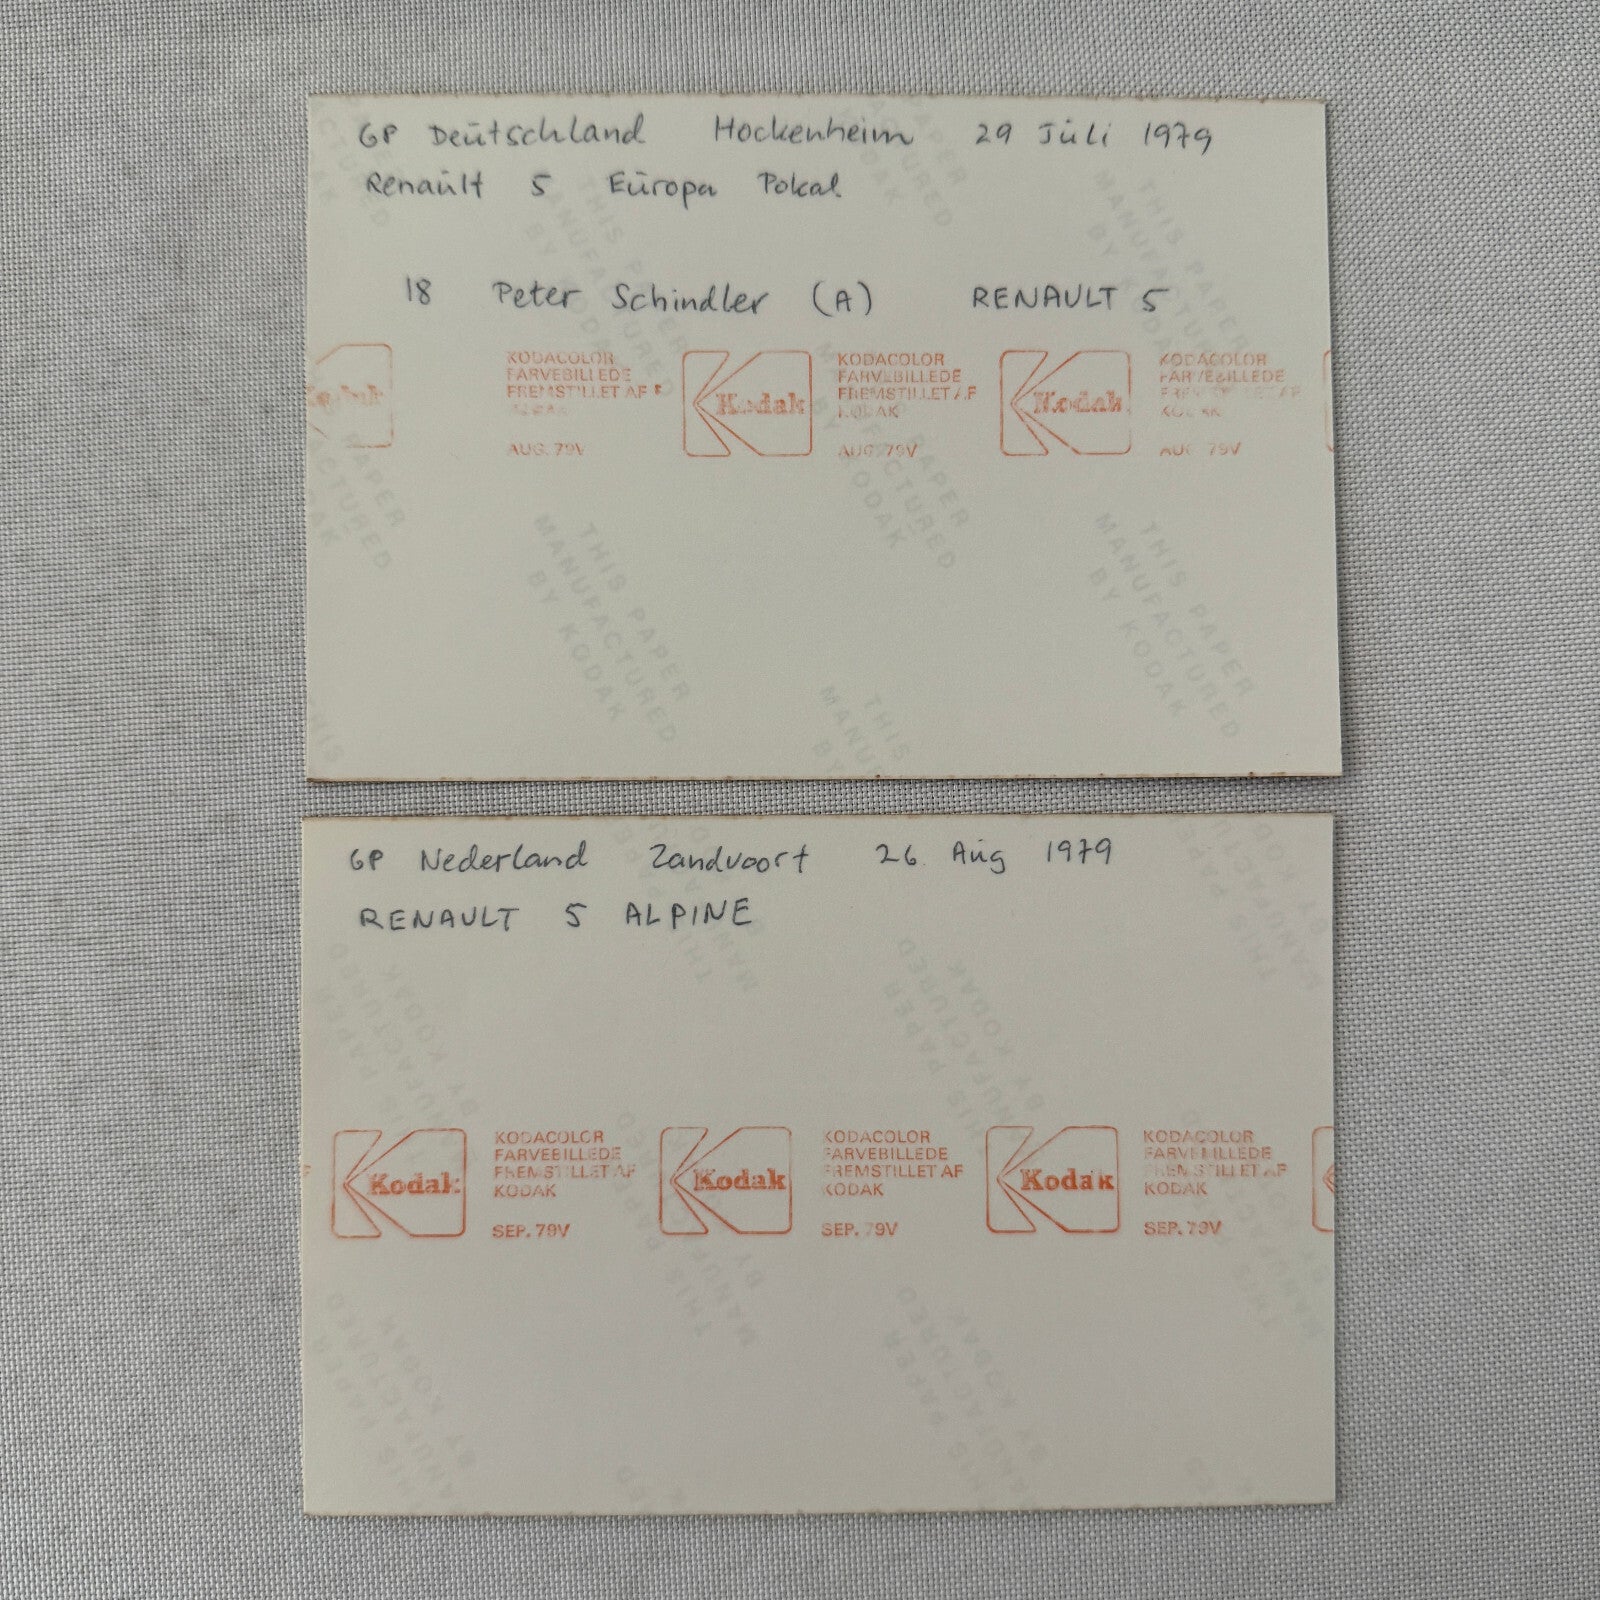 GP Deutschland Hockenheim 29 Juli 1979
Renault 5 Europa Pokal
18 Peter Schindler (A) RENAULT 5
Kodak
KODACOLOR
FARVEBILLEDE
FREMSTILLET AF
AUG. 79V
Kodak
KODACOLOR
FARVEBILLEDE
FREMSTILLET AF
KODAK
AUG. 79V
Kodak
KODACOLOR
FARVEBILLEDE
FREMSTILLET AF
KODAK
AUG 79V
THIS PAPER
MANUFACTURED
BY KODAK
THIS PAPER
MANUFACTURED
BY KODAK
GP Nederland Zandvoort 26 Aug 1979
RENAULT 5 ALPINE
Kodak
KODACOLOR
FARVEBILLEDE
FREMSTILLET AF
KODAK
SEP. 79V
Kodak
KODACOLOR
FARVEBILLEDE
FREMSTILLET AF
KODAK
SEP. 79V
Kodak
KODACOLOR
FARVEBILLEDE
FREMSTILLET AF
KODAK
SEP. 79V